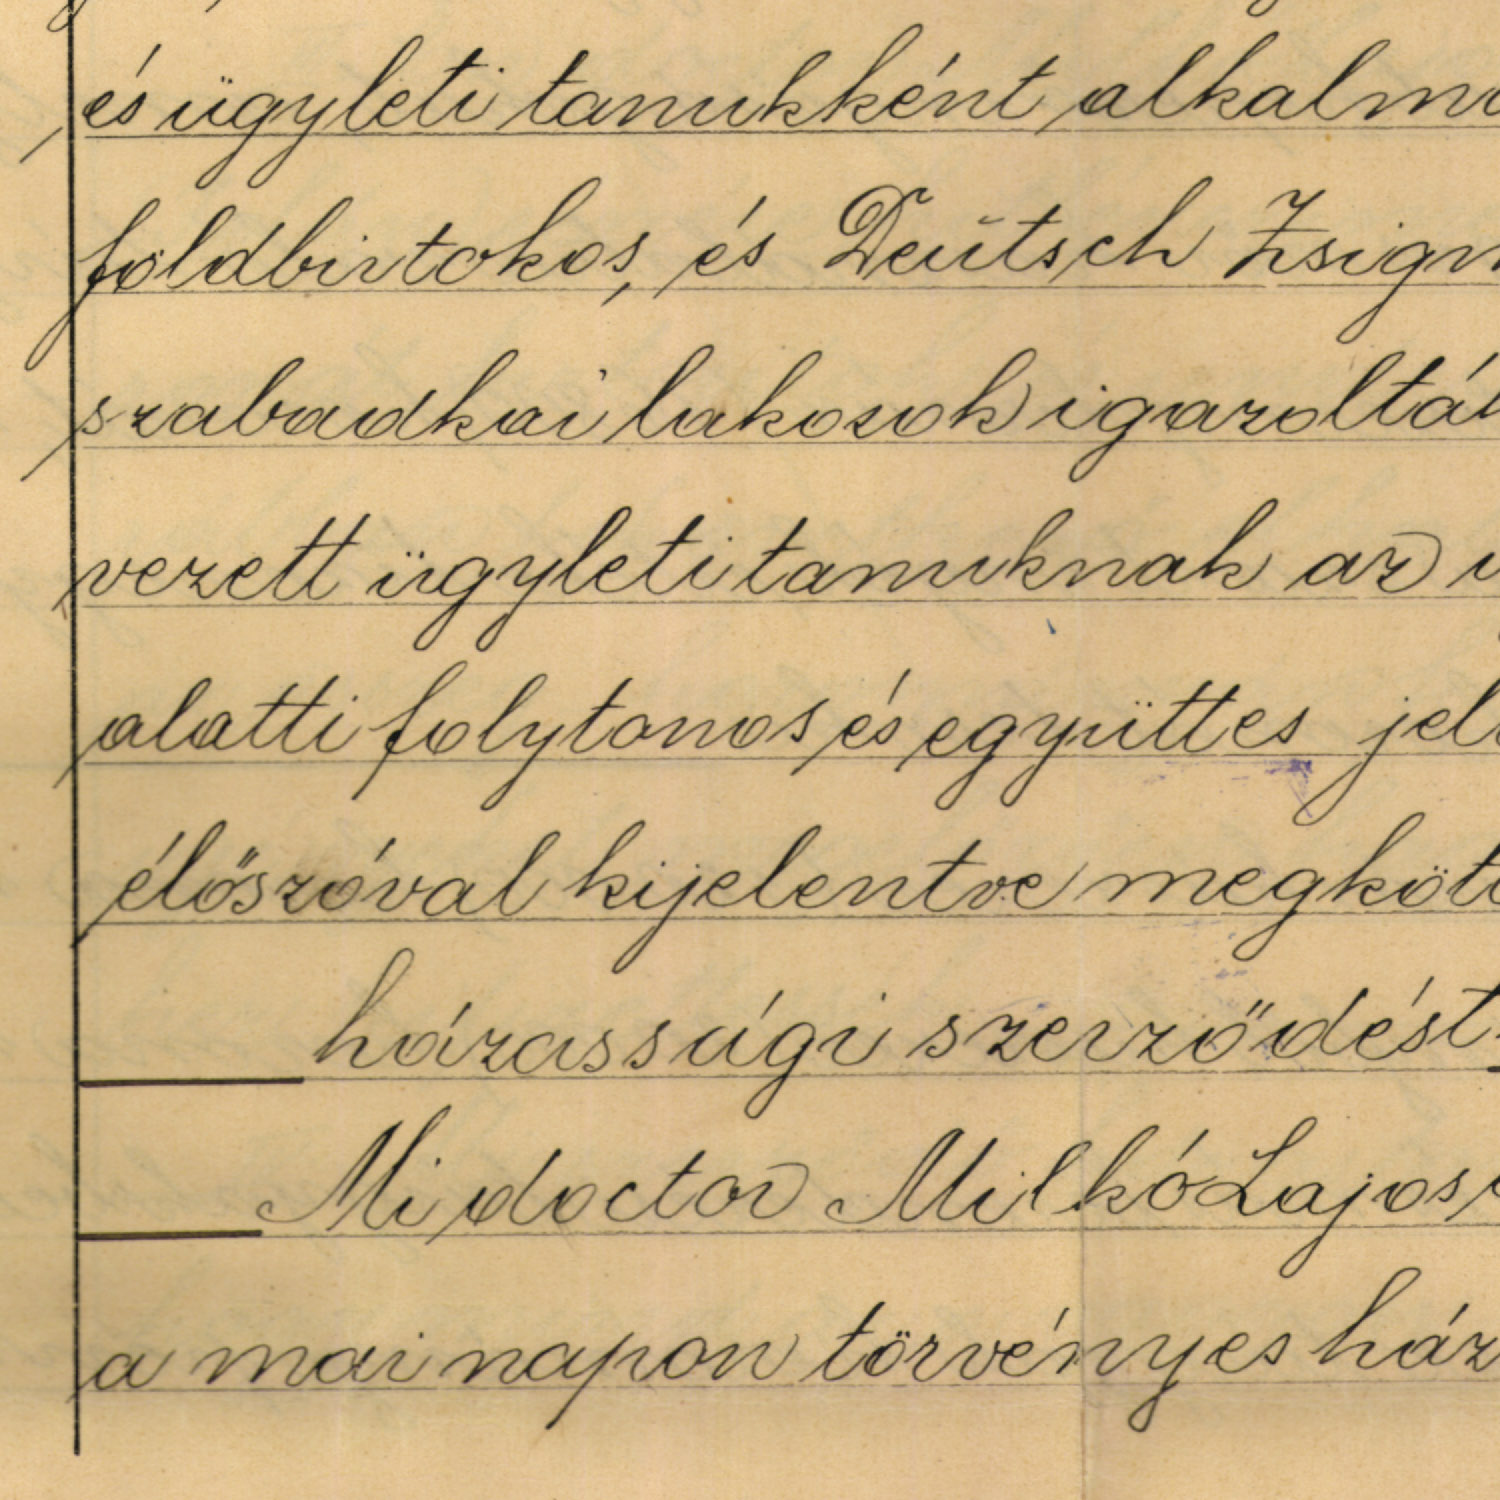 és ügyleti tanukként alkalma
földbirtokos, és Deutsch Zsigm
szabadkai lakosok igazoltá
vezett ügyleti tanuknak az
alatti folytonos és együttes jel
élőszóval kijelentve megköt
házassági szerződést
Mi doctor Milkó Lajos
a mai napon törvényes ház